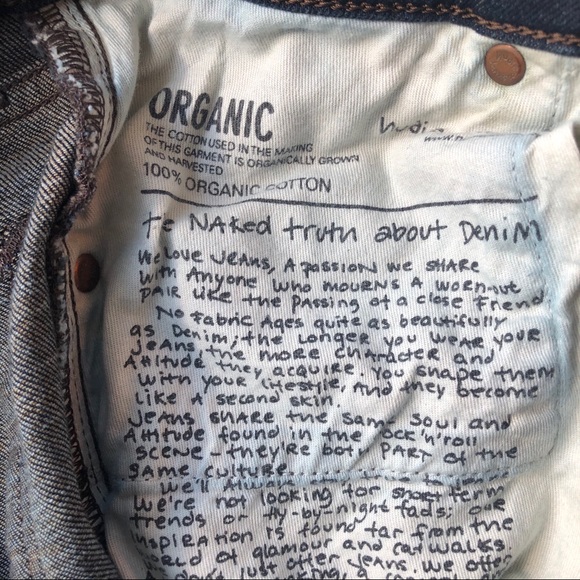 ORGANIC
THE COTTON USED IN THE MAKING
OF THIS GARMENT IS ORGANICALLY GROWN
AND HARVESTED
100% ORGANIC COTTON
te NAKED truth about DENIM
We LOVE JEANS, A PASSION WE SHARE
With Anyone WHO MOURNS A WORN-OUT
PAIR LIKE the PASSING of a close FRIEND
No FABRIC AGES quite as beautifully
as Denim, the LONGER you WEAR YOUR
JEANS, the more CHARACTER and
Attitude they acquire. You SHAPE them
With YOUR LIFESTYLE, And they become
LIKE A second SKIN.
JEANS SHARE the SAME SOUL and
Attitude found in the ROCK'n'roll
SCENE - they're both PART of the
SAME culture.
We'll Always
We're not looking for short term
trends or fly-by-night fads: OUR
INSPIRATION is found far from the
WORLD of glamour and cat WALKS.
just offer jeans. We offer